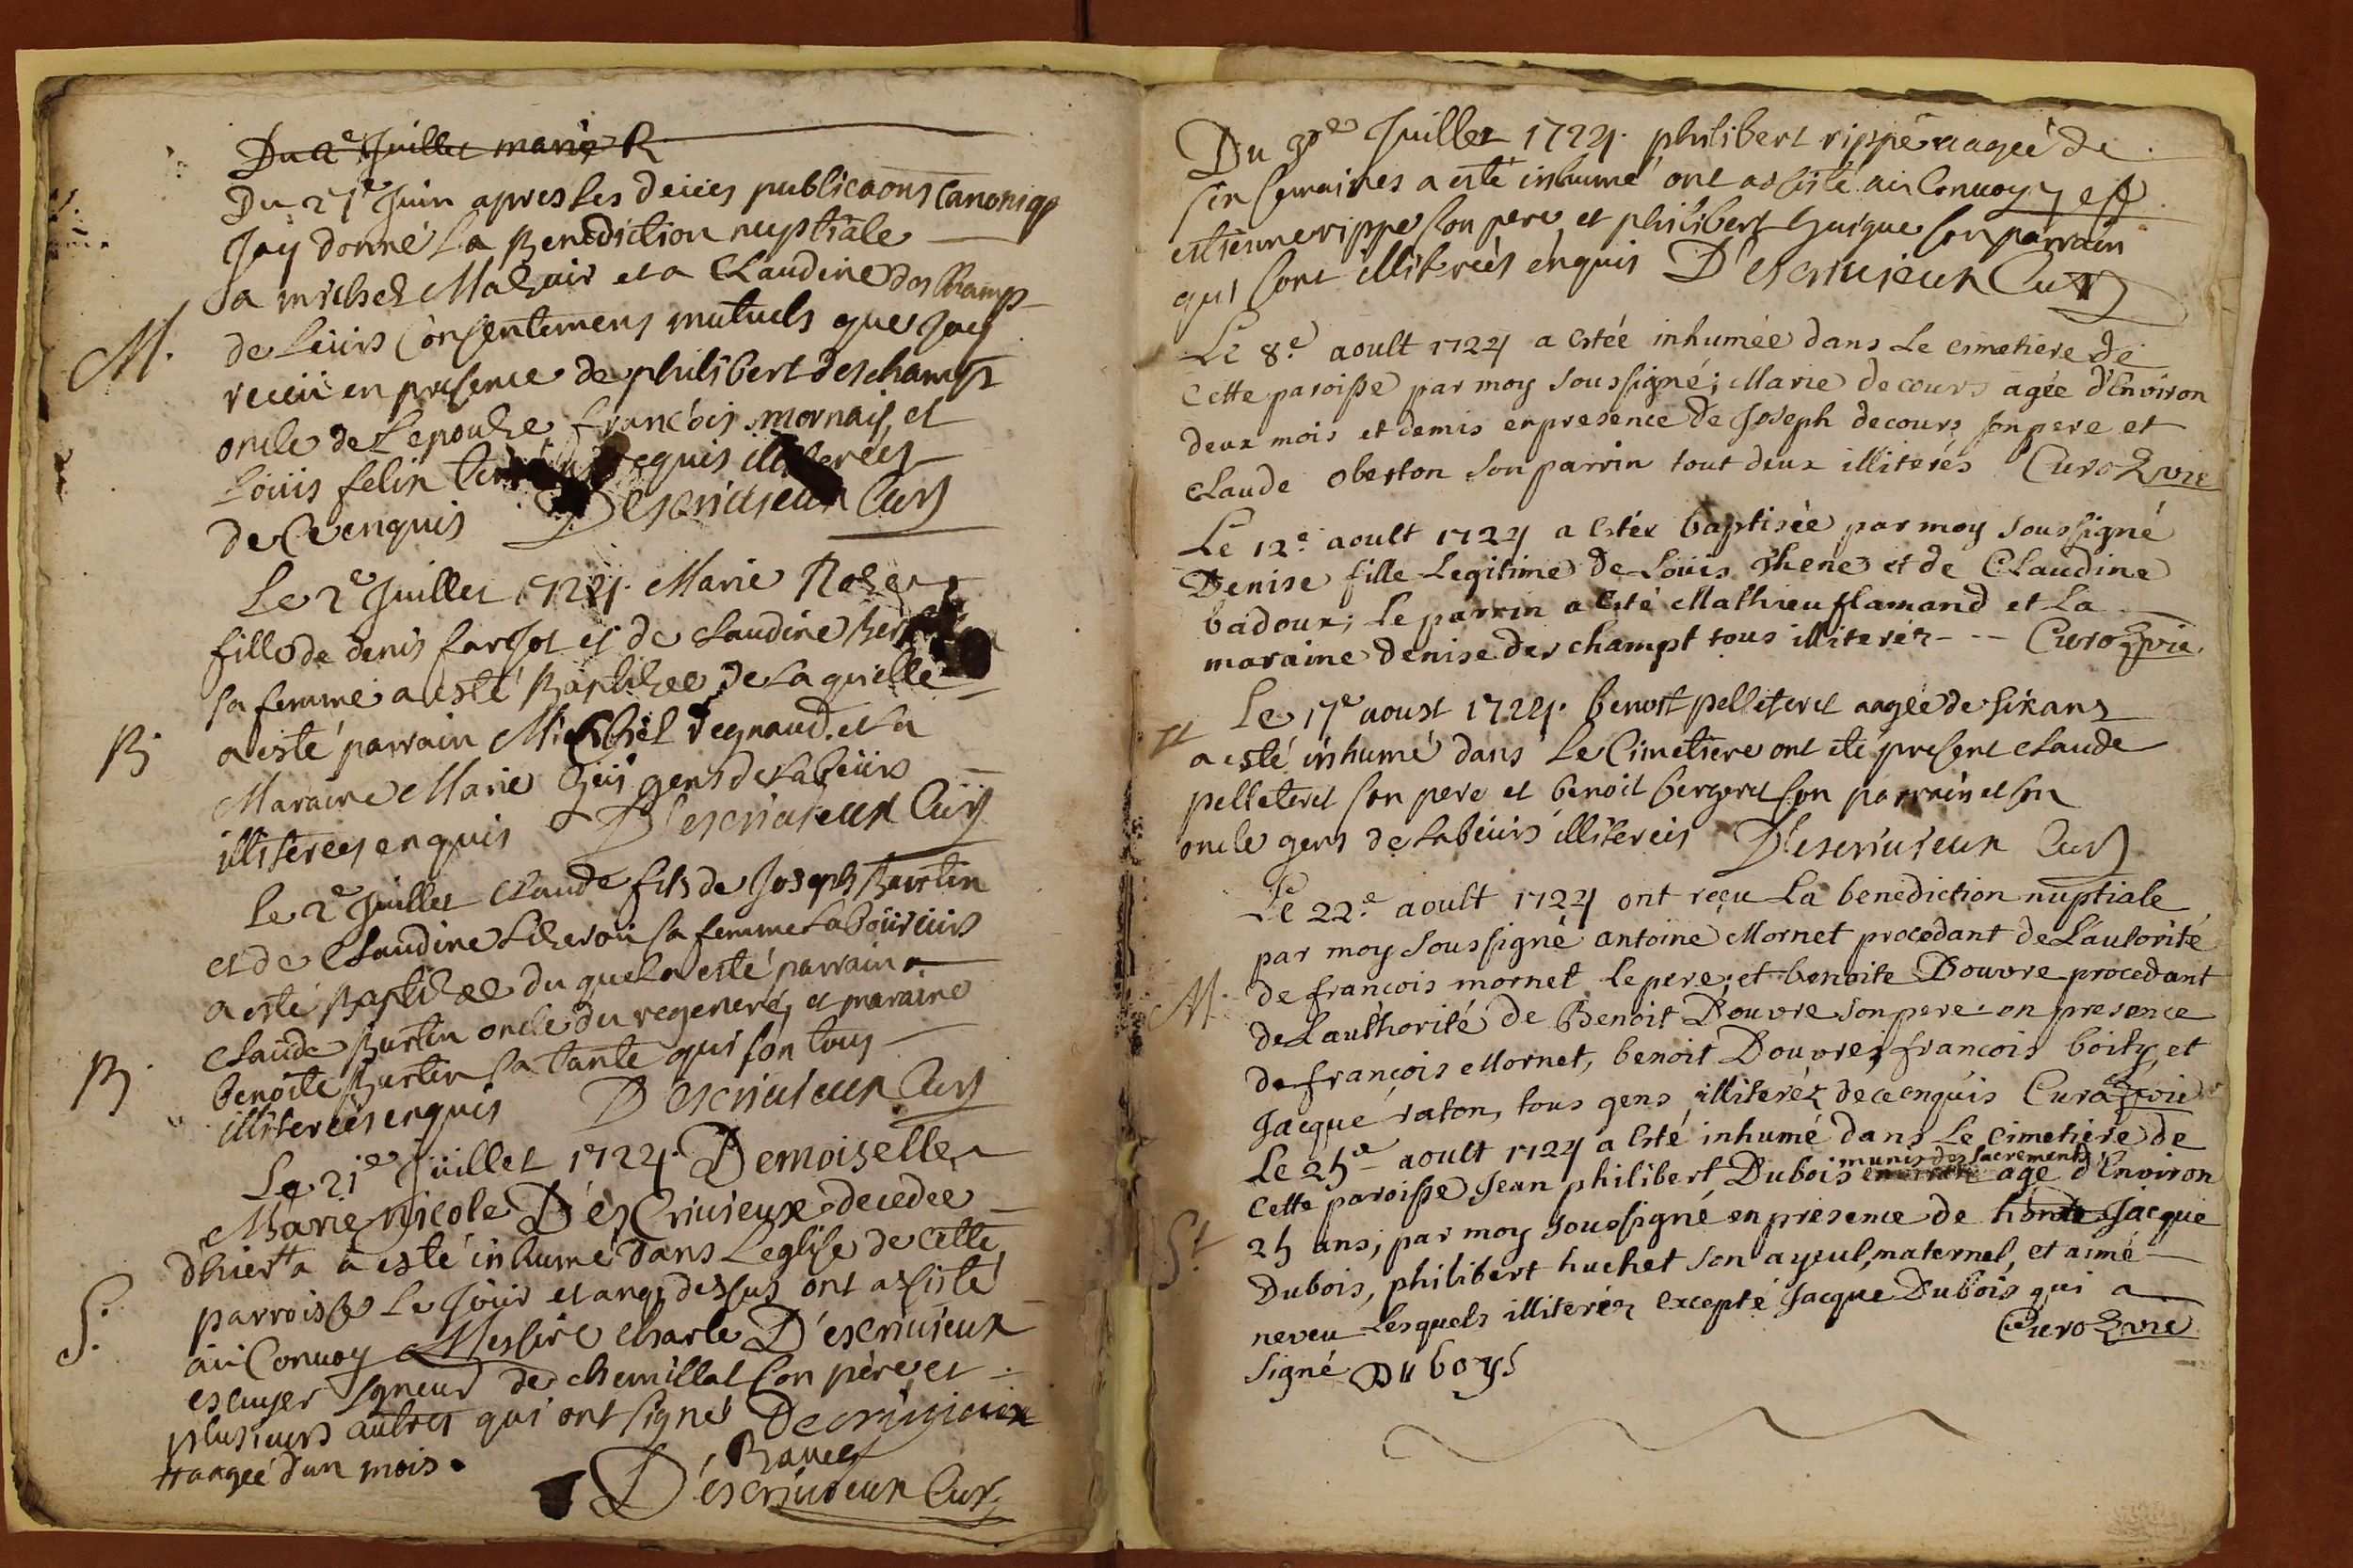 Du 2e Juillet marie R
Du 21e Juin apres les deües publicaons Canoniqs
Jay donné La Benediction nuptiale
a michel Malzair et a Claudine des Champ
M. de Leurs Consentemens mutuels que Jay
receü en presence de philibert deschamps
oncle de Lepouze francois mornay, et
Loüis felix illiterées
de Ce enquis D'escriuieux Curé
Le 2e Juillet 1724. Marie
fille de denis farjot et de claudine
sa femme a esté Baptizee de Laquelle
B a esté parrain Michel regnaud et La
Maraine Marie gens de Labeurs
illiterées enquis D'escriuieux Curé
Le 2e Juillet Claude fils de Joseph Burtin
et de Claudine sa femme Laboureurs
a esté Baptizee du quel a esté parrain
Claude Burtin oncle du regeneré, et maraine
B. benoite Burtin sa tante qui son tous
illiterées enquis D'escriuieux Curé
Le 21e Juillet 1724. Demoiselle
Marie nicole D'esCriuieux decedee
d'hier tt a esté inhumé dans Leglise de Cette
S. parroisse Le Jour et an dessus ont assisté
au Conuoy Messire Charle D'escriuieux
escuyer sgneur de chemillat son père et
plusieurs autres qui ont signés Decriuieux
tt aagée d'un mois.
D'escriuieux Curé
Du Juillet 1724. philibert rippe aagée de
semaines a esté inhumé ont assisté au Conuoy
estienne rippe son pere et philibert Guigue son parrain
qui sont illiterées enquis D'escriuieux Curé
Le 8.e aoult 1724 a estée inhumée dans Le cimetiere de
Cette paroisse par moy soussigné; Marie decours agée d'Environ
deux mois et demis en presence de Joseph decours son pere et
claude oberton son parrin tout deux illiterés Curoz vic
Le 12.e aoult 1724 a estée baptisée par moy soussigné
Denise fille Legitime de Loüis thene et de Claudine
badoux; Le parrin a esté Mathieu flamand et La
maraine denise des champt tous illiteréz -- Curoz vic
Le 17e aoust 1724. benoit pelleteret aagée de six ans
a esté inhumé dans Le Cimetiere ont eté present claude
pelleteret son pere et benoit bergeret son parrain et son
oncle gens de Labeurs illiterées D'escriuieux Curé
Le 22.e aoult 1724 ont reçu La benediction nuptiale
par moy soussigné antoine Mornet procedant de L'autorité
M. de francois mornet le pere; et benoite Douvre procedant
de L'authorité de Benoit Douvre son pere: en presence
de françois Mornet, benoit Douvres, francois boity, et
Jacque raton, tous gens illiteréz de ce enquis Curoz vic
Le 25e aoult 1724 a esté inhumé dans Le cimetiere de
munis des sacrements
cette paroisse Jean philibert Dubois agé d'Environ
S. 25 ans; par moy soussigné en presence de Jacque
Dubois, philibert huchet son ayeul maternel, et aimé
neveu Lesquels illiteréz excepté Jacque Dubois qui a
Curoz vic
signé DUboys